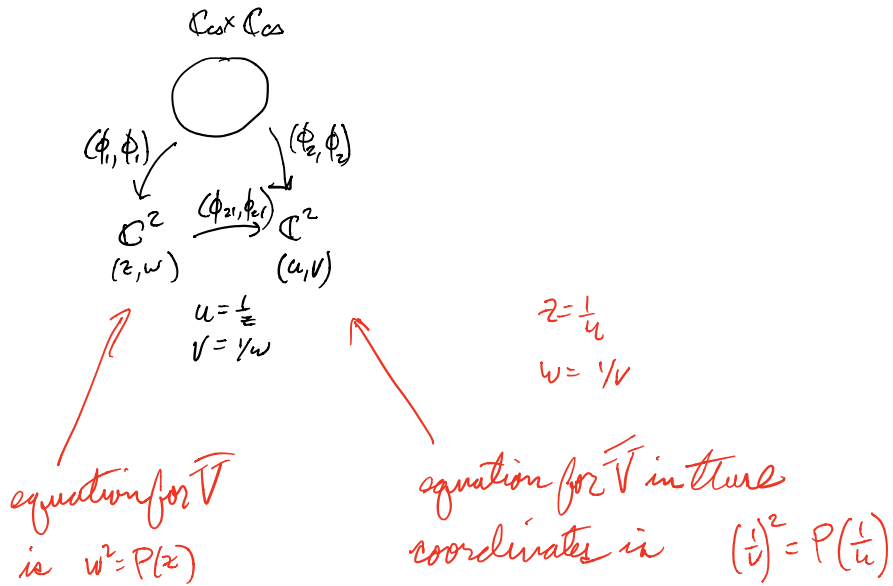 ℂ∞ × ℂ∞
(ϕ₁, ϕ₁) (ϕ₂, ϕ₂)
(ϕ₂₁, ϕ₂₁)
ℂ² ℂ²
(z, w) (u, v)
u = 1/z
v = 1/w
z = 1/u
w = 1/v
equation for V̅
is w² = P(z)
equation for V̅ in these
coordinates is (1/v)² = P(1/u)